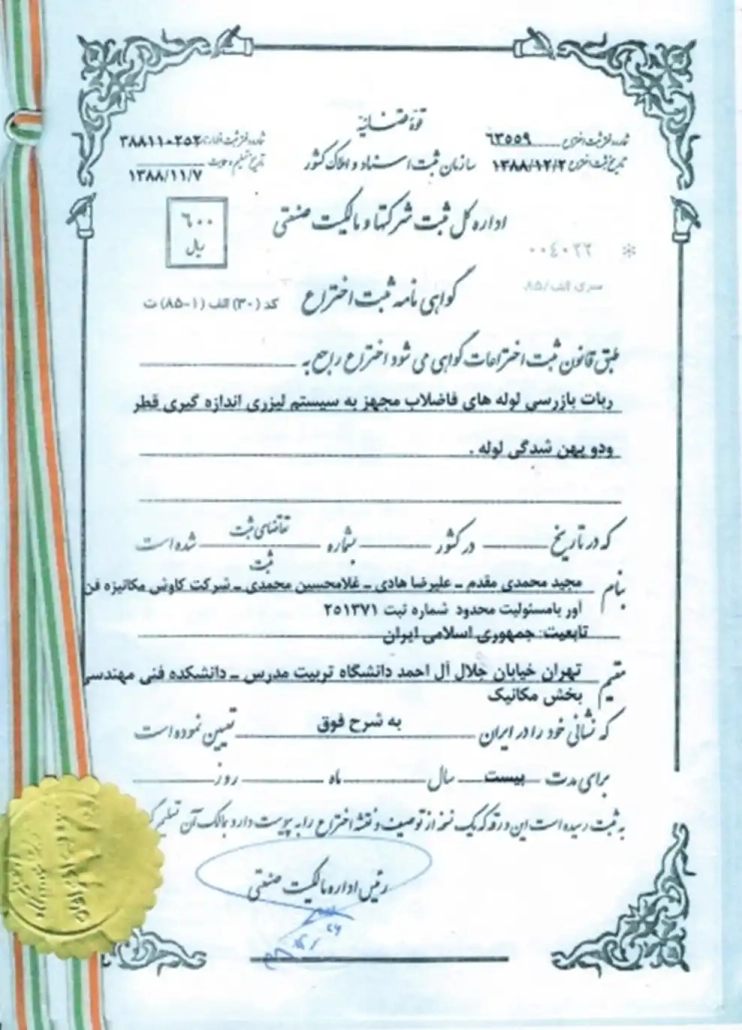 قوه قضائیه
شماره ثبت اختراع ۶۳۵۵۹
شماره دفتر ثبت اظهارنامه ۳۸۸۱۱۰۲۵۲
سازمان ثبت اسناد و املاک کشور
تاریخ ثبت اختراع ۱۳۸۸/۱۲/۲
تاریخ تسلیم
۱۳۸۸/۱۱/۷
اداره کل ثبت شرکتها و مالکیت صنعتی
۶۰۰
ریال
۰۰۴۰۲۲ *
سری الف/۸۵
گواهی نامه ثبت اختراع
کد (۳۰) الف (۱-۸۵) ت
طبق قانون ثبت اختراعات گواهی می شود اختراع راجع به
ربات بازرسی لوله های فاضلاب مجهز به سیستم لیزری اندازه گیری قطر
ودو پهن شدگی لوله .
که در تاریخ در کشور بشماره تقاضای ثبت شده است
ثبت
بنام مجید محمدی مقدم – علیرضا هادی – غلامحسین محمدی – شرکت کاوش مکانیزه فن
آور بامسئولیت محدود شماره ثبت ۲۵۱۳۷۱
تابعیت: جمهوری اسلامی ایران
مقیم تهران خیابان جلال آل احمد دانشگاه تربیت مدرس – دانشکده فنی مهندسی
بخش مکانیک
که نشانی خود را در ایران به شرح فوق تعیین نموده است
برای مدت بیست سال ماه روز
به ثبت رسیده است این ورقه که یک نسخه از توصیف و نقشه اختراع را به پیوست دارد بمالک آن تسلیم
رئیس اداره مالکیت صنعتی